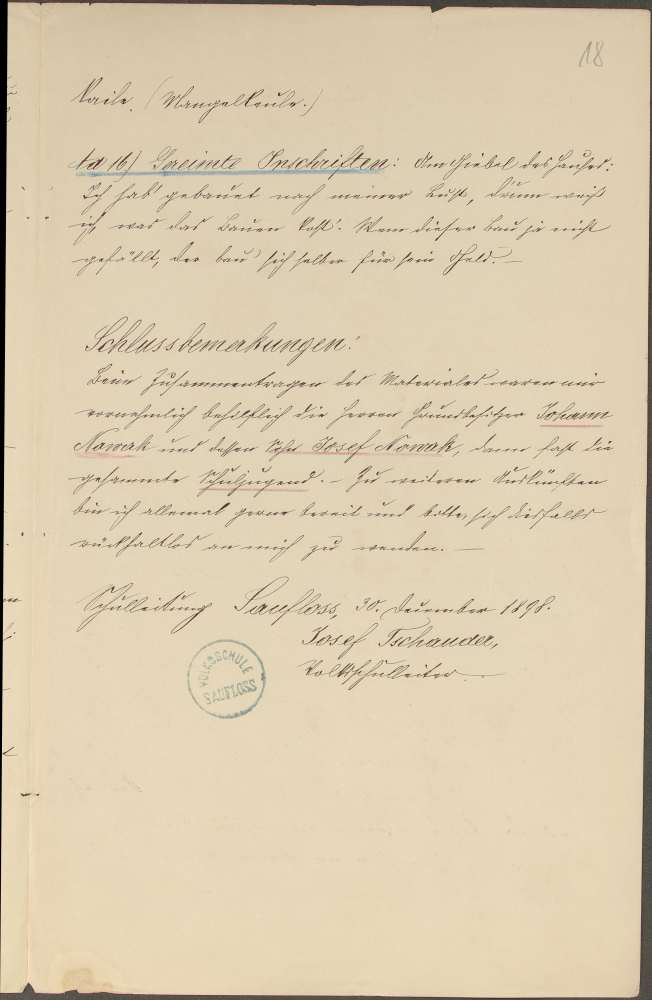 18
Keile. (Mangelkeule.)
Ad 16) Gereimte Inschriften: Am Giebel des Hauses:
Ich hab' gebauet nach meiner Lust, drum weiß
ich, was das Bauen kost'. Wem dieser Bau ja nicht
gefällt, der bau' sich selber für sein Geld. —
Schlussbemerkungen:
Beim Zusammentragen des Materiales waren mir
vornehmlich behilflich die Herren Grundbesitzer Johann
Nowak und dessen Sohn Josef Nowak, dann fast die
gesammte Schuljugend. — Zu weiteren Auskünften
bin ich allemal gerne bereit und bitte, sich diesfalls
rückhaltlos an mich zu wenden. —
Schulleitung Saufloss, 30. Dezember 1898.
Josef Tschauder,
Volksschulleiter. —
VOLKSSCHULE
SAUFLOSS